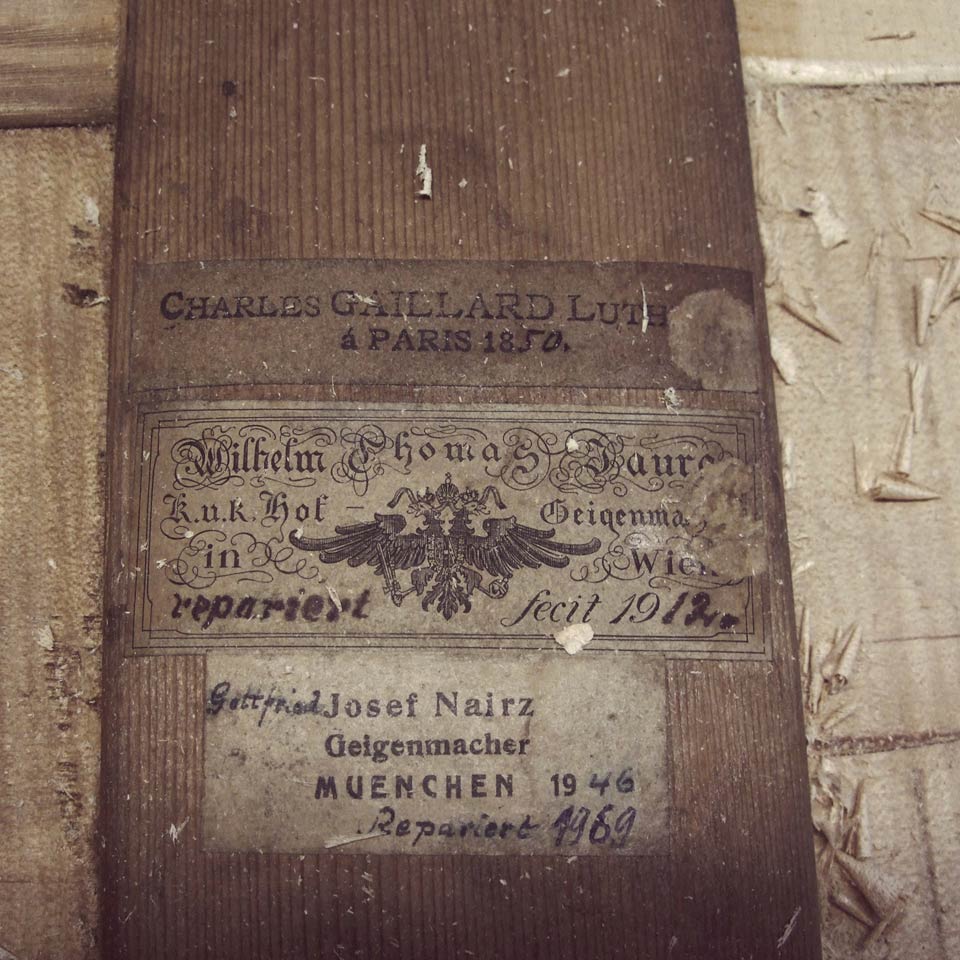 CHARLES GAILLARD LUTH
á PARIS 1850.
Wilhelm Thomas Jaura
K.u.k. Hof - Geigenma
in Wien
repariert fecit 1912
Gottfried Josef Nairz
Geigenmacher
MUENCHEN 1946
Repariert 1969